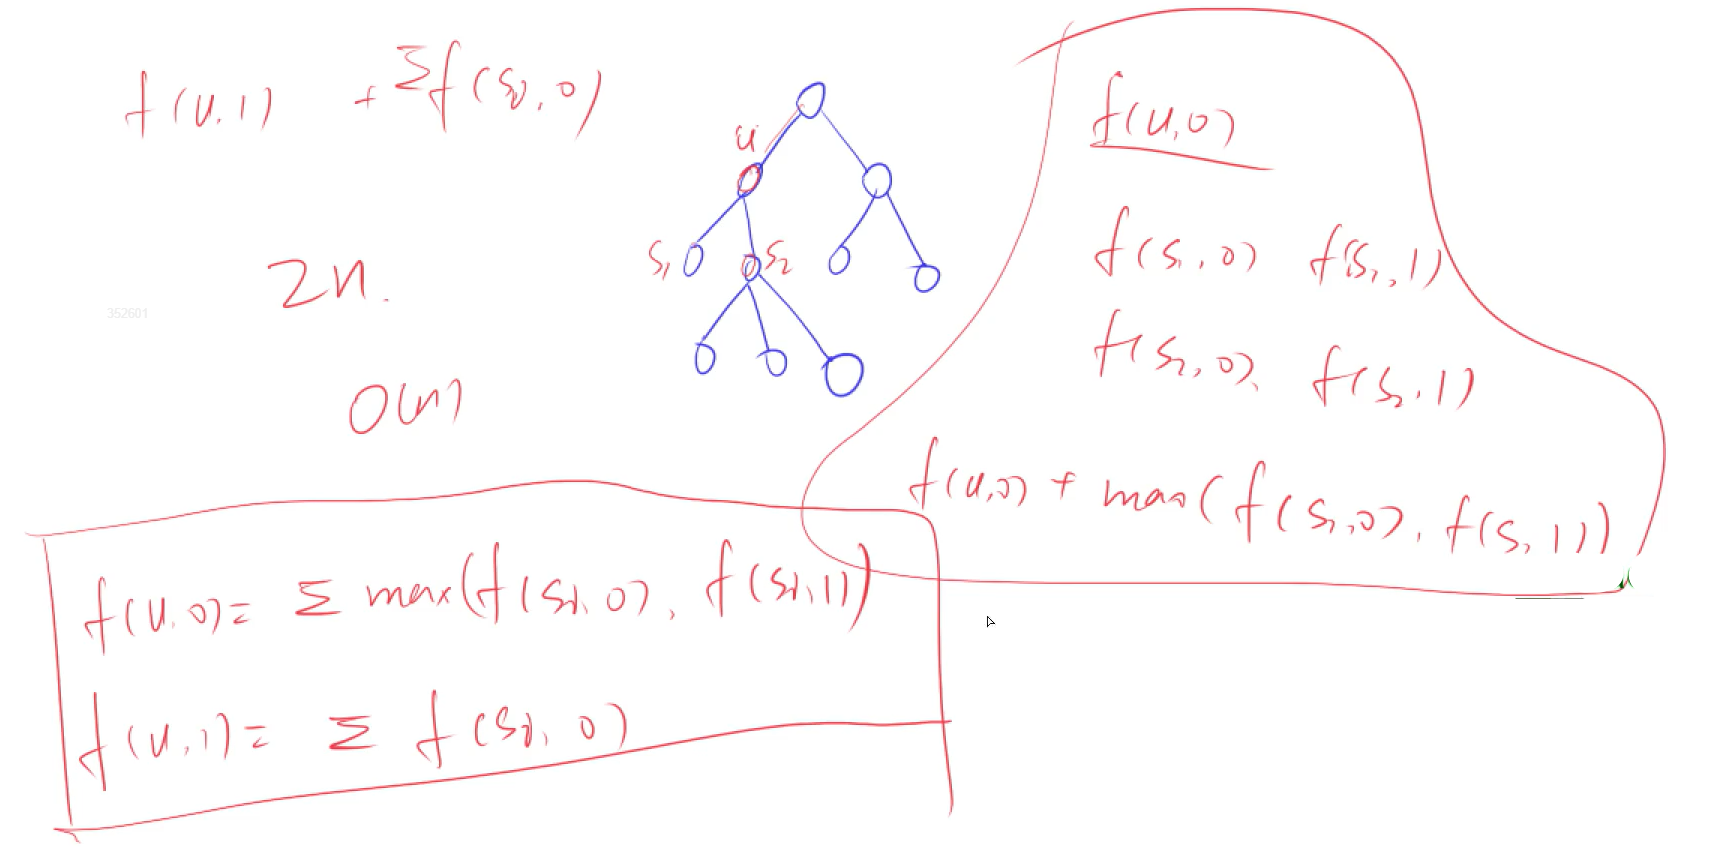 f(u,1) + Σf(si,0)
u
s1
s2
2n.
352601
O(n)
f(u,0)
f(s1,0) f(s1,1)
f(s2,0), f(s2,1)
f(u,0) + max(f(s1,0), f(s1,1))
f(u,0)= Σ max(f(si,0), f(si,1))
f(u,1)= Σ f(si,0)